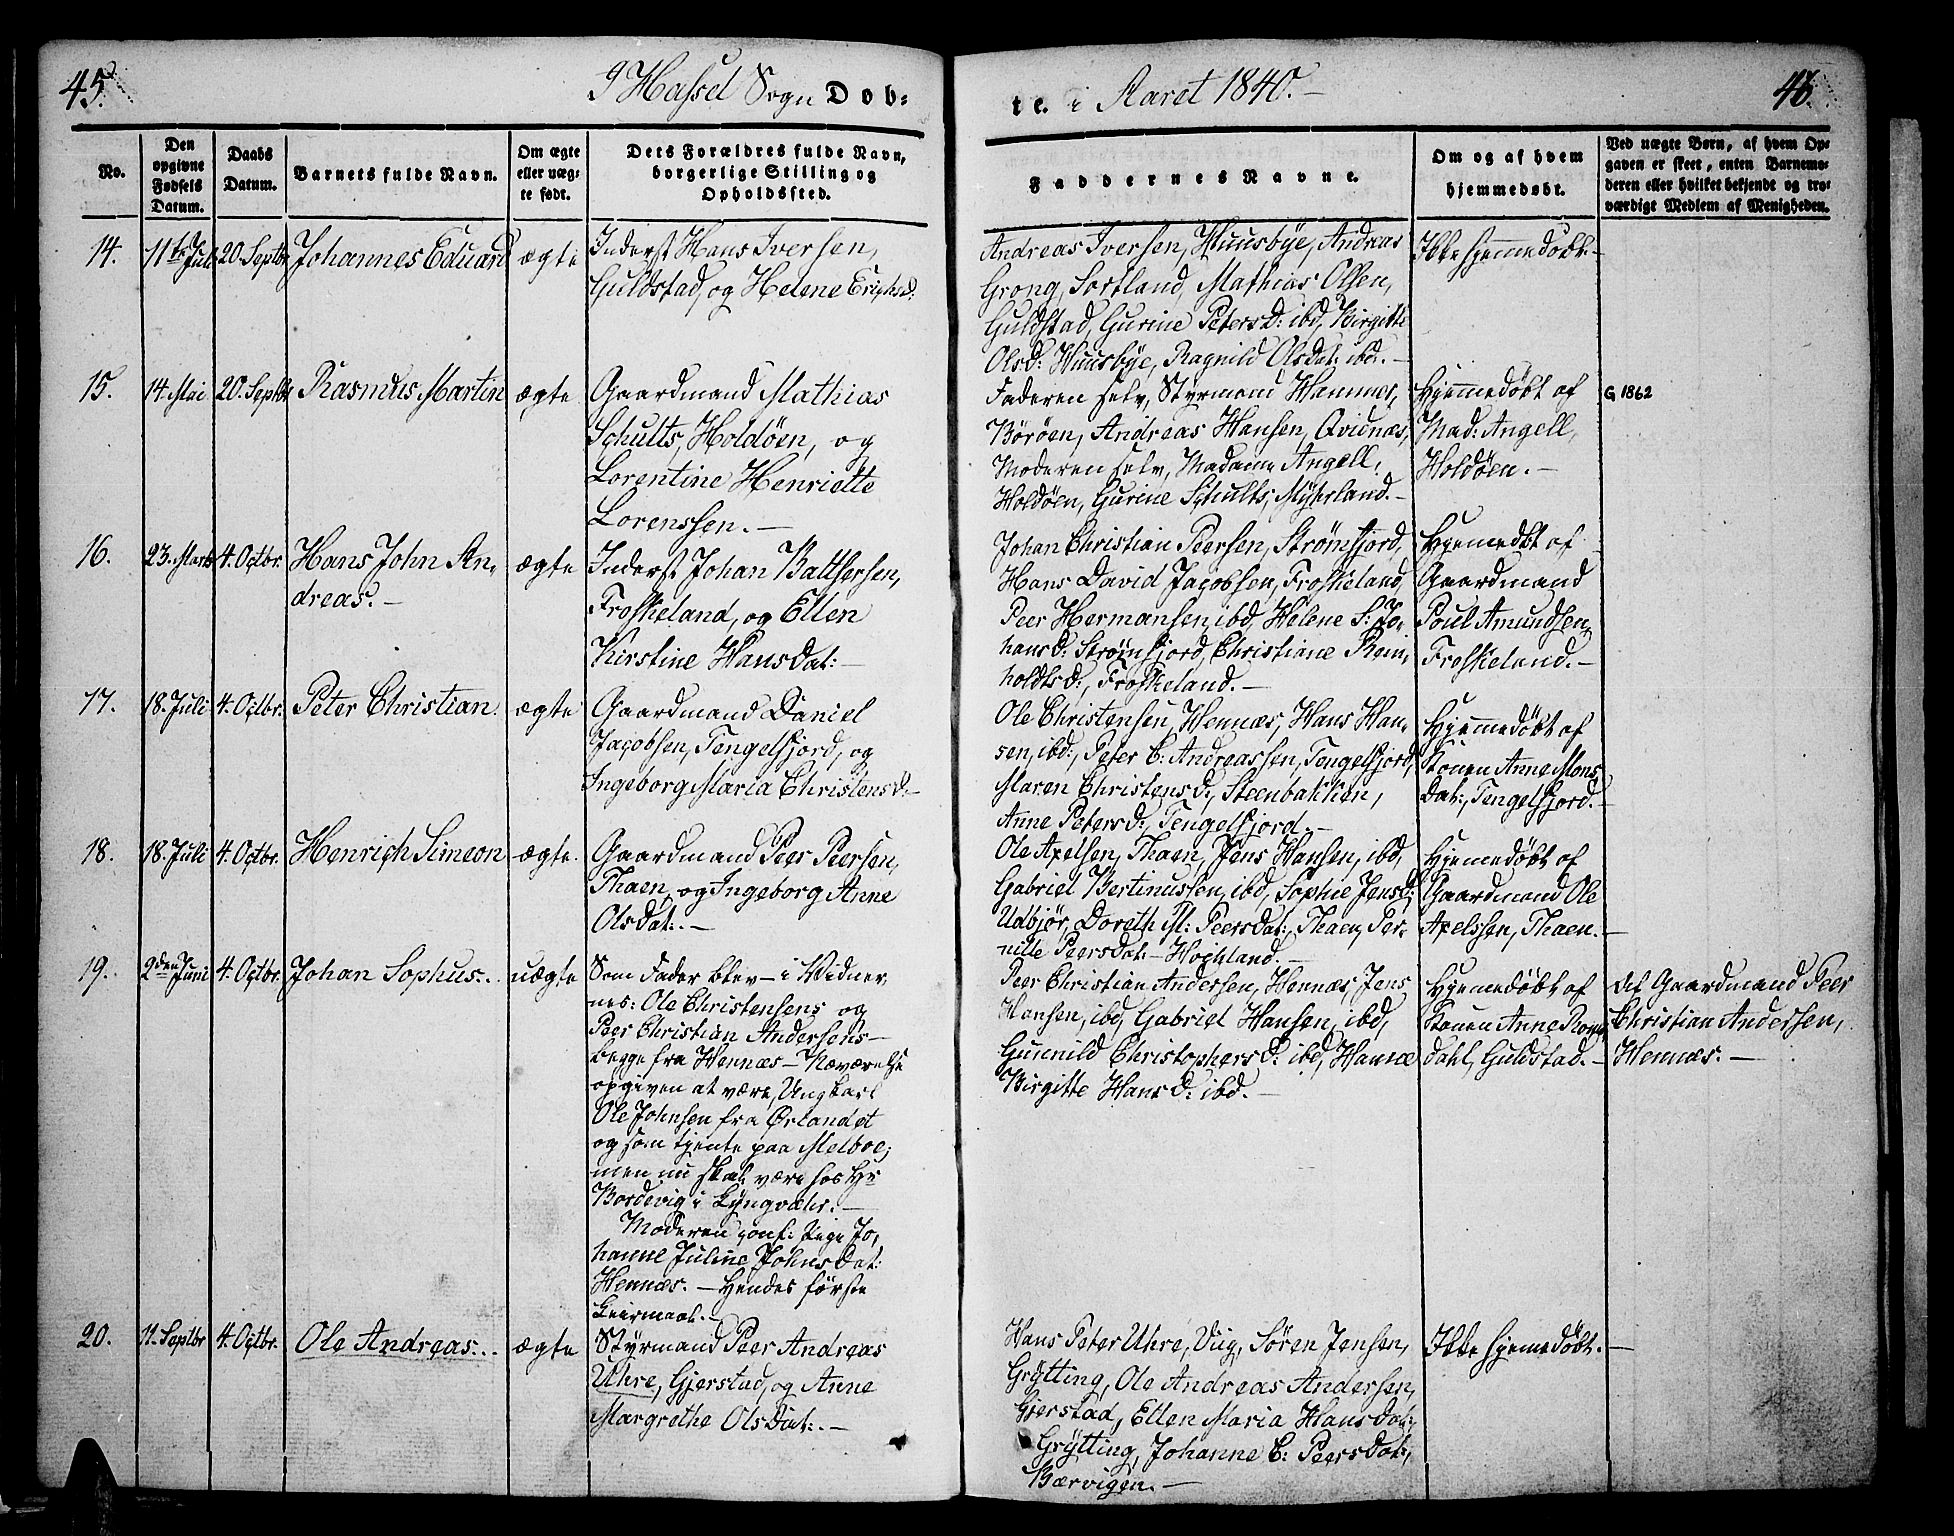 45.
I Hassel Sogn Døb-
No.
Den
opgivne
Fødsels
Datum.
Daabs
Datum.
Barnets fulde Navn.
Om ægte
eller uæg-
te født.
Dets Forældres fulde Navn,
borgerlige Stilling og
Opholdssted.
14.
11te Juli
20. Septbr.
Johannes Eduard
ægte
Inderst Hans Iversen,
Guldstad, og Helene Erichsd:
15.
14. Mai
20. Septbr
Rasmus Martin
ægte
Gaardmand Mathias
Schults, Holdøen, og
Lorentine Henriette
Lorenssen. —
16.
23. Marts
4. Octbr.
Hans John An-
dreas. —
ægte
Inderst Johan Balthersen,
Froskeland, og Ellen
Kirstine Hansdat: —
17.
18. Juli
4. Octbr.
Peter Christian.
ægte
Gaardmand Daniel
Jacobsen, Tengelfjord, og
Ingeborg Maria Christensd: —
18.
18. Juli
4. Octbr.
Henrich Simeon
ægte.
Gaardmand Peer Peersen,
Thaen, og Ingeborg Anne
Olsdat:. —
19.
2den Juni
4. Octbr.
Johan Sophus..
uægte
Som Fader blev — i Vidner-
nes: Ole Christensens og
Peer Christian Andersens —
begge fra Hennæs — Nærværelse
opgiven at være, Ungkarl
Ole Johnsen fra Ørlandet
og som tjente paa Melboe,
men nu skal være hos Hr
Bordevig i Lyngvær. —
Moderen conf: Pige Jo-
hanne Juline Johnsdat:
Hennæs. — Hendes første
Leiermaal. —
20.
11. Septbr
4. Octbr.
Ole Andreas..
ægte
Styrmand Peer Andreas
Uhre, Gjerstad, og Anne
Margrethe Olsdat:. —
te i Aaret 1840. —
46.
Faddernes Navne.
Om og af hvem
hjemmedøbt.
Ved uægte Børn, af hvem Op-
gaven er skeet, enten Barnemo-
deren eller hvilket bekjendt og tro-
værdigt Medlem af Menigheden.
Andreas Iversen, Huusbye, Andreas
Grong, Sortland, Mathias Olsen,
Guldstad, Gurine Petersd: ibd, Birgitte
Olsd: Huusbye, Ragnild Olsdat: ibd. —
Ikke hjemmedøbt. —
Faderen selv, Styrmand Hammer,
Børøen, Andreas Hansen, Qvidnæs,
Moderen selv, Madame Angell,
Holdøen, Gurine Schults, Myhrland. —
Hjemmedøbt af
Mad: Angell,
Holdøen. —
G 1862
Johan Christian Peersen, Strømfjord,
Hans David Jacobsen, Froskeland,
Peer Hermansen, ibd, Helene S: Jo-
hansd: Strømfjord, Christiane Rein-
holdtsd:, Froskeland. —
Hjemedøbt af
Gaardmand
Poul Amundsen,
Froskeland. —
Ole Christensen, Hennæs, Hans Han-
sen, ibd:, Peter C: Andreassen, Tengelfjord,
Maren Christensd:, Steenbakken,
Anne Petersd:, Tengelfjord. —
Hjemmedøbt af
Konen Anne Mons-
dat:, Tengelfjord. —
Ole Axelsen, Thaen, Jens Hansen, ibd,
Gabriel Bertinussen, ibd, Sophie Jensd:
Udbjør, Doreth M: Peersdat:, Thaen, Per-
nille Peersdat: — Hochland. —
Hjemedøbt af
Gaardmand Ole
Axelssen, Thaen. —
Peer Christian Andersen, Hennæs, Jens
Hansen, ibd, Gabriel Hansen, ibd,
Gunnild Christophersd: ibd, Hanne
Birgitte Hansd: ibd. —
Hjemedøbt af
Konen Anne Roms-
dahl, Guldstad. —
Af Gaardmand Peer
Christian Andersen,
Hennæs. —
Hans Peter Uhre, Viig, Søren Jensen,
Grÿtting, Ole Andreas Andersen,
Gjerstad, Ellen Maria Hansdat:,
Grÿtting, Johanne C: Peersdat:,
Bærvigen. —
Ikke hjemedøbt. —